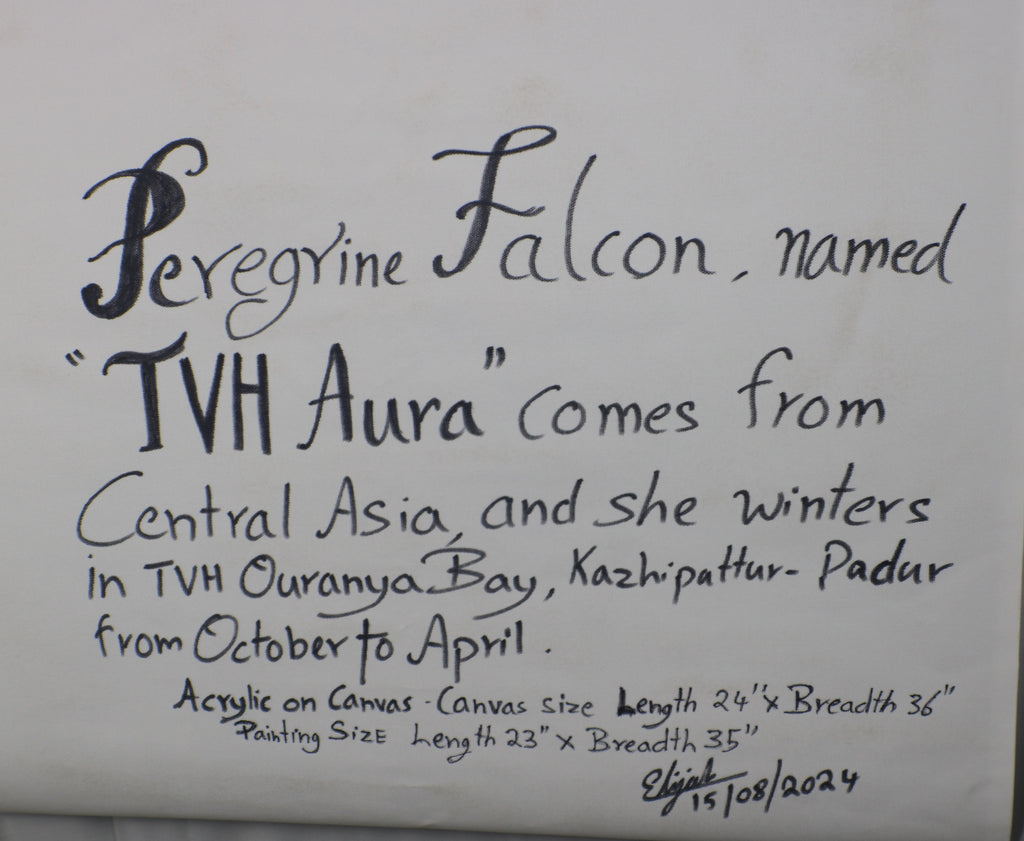 Peregrine Falcon, named
"TVH Aura" comes from
Central Asia, and she winters
in TVH Ouranya Bay, Kazhipattur- Padur
from October to April.
Acrylic on Canvas - Canvas size Length 24" x Breadth 36"
Painting Size Length 23" x Breadth 35"
Elijah
15/08/2024